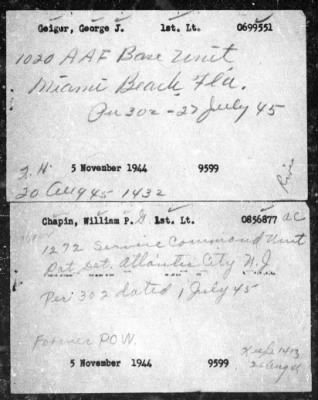 Geiger, George J. 1st. Lt. 0699551
1020 AAF Base Unit
Miami Beach, Fla.
Par 302 - 27 July 45
5 November 1944 9599
20 Aug 45 1432
Chapin, William P. 1st. Lt. 0856877 AC
1272 Service Command Unit
Atlantic City N.J
Per 302 dated 1 July 45
Former POW.
5 November 1944 9599